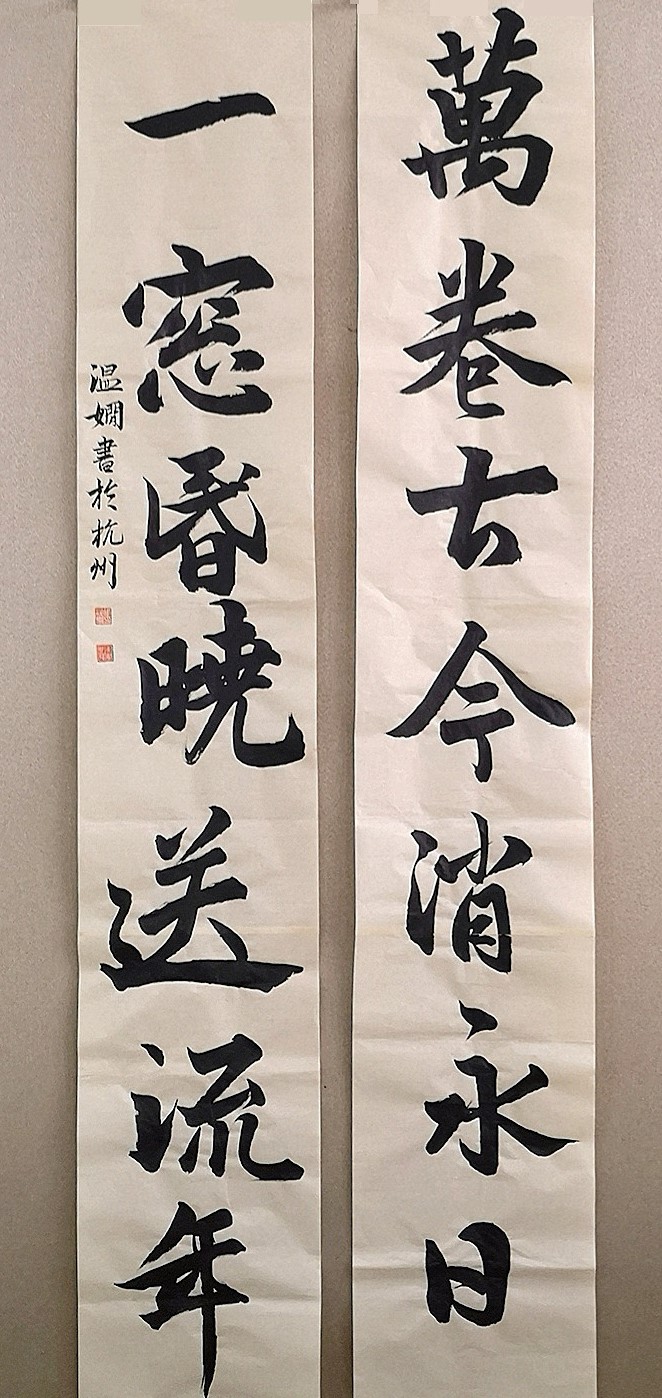 萬卷古今消永日
一窓昬曉送流年
温嫺書於杭州